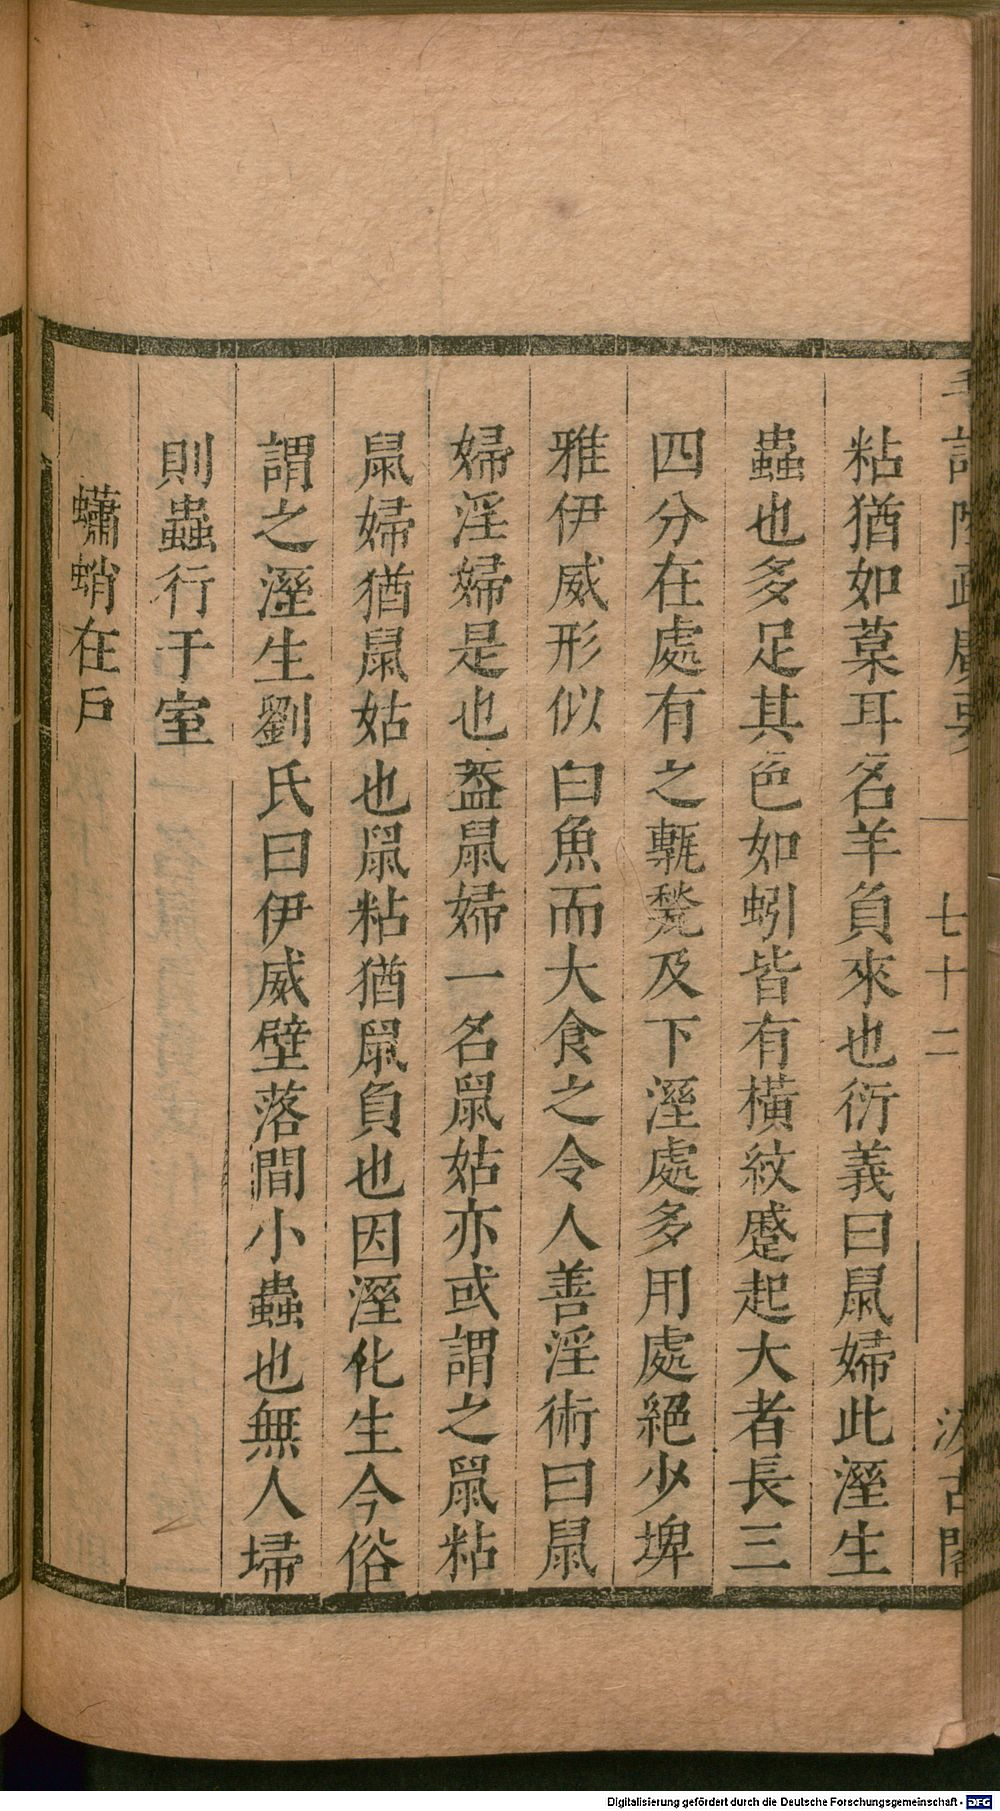 粘猶如菒耳名羊負來也衍義曰鼠婦此溼生
蟲也多足其色如蚓皆有橫紋蹙起大者長三
四分在處有之甎甃及下溼處多用處絕少埤
雅伊威形似白魚而大食之令人善淫術曰鼠
婦淫婦是也蓋鼠婦一名鼠姑亦或謂之鼠粘
鼠婦猶鼠姑也鼠粘猶鼠負也因溼化生今俗
謂之溼生劉氏曰伊威壁落間小蟲也無人埽
則蟲行于室
蠨蛸在戶
七十二
Digitalisierung gefördert durch die Deutsche Forschungsgemeinschaft - DFG